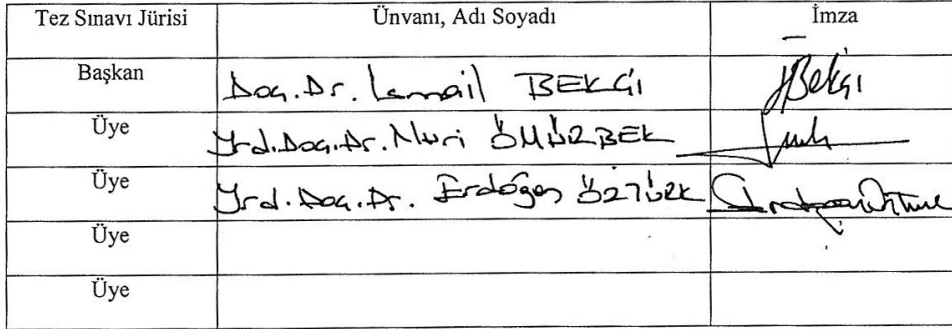 Tez Sınavı Jürisi Ünvanı, Adı Soyadı İmza
Başkan Doç.Dr. İsmail BEKÇİ HBekçi
Üye Yrd.Doç.Dr. Nuri ÖMÜRBEK
Üye Yrd.Doç.Dr. Erdoğan ÖZTÜRK
Üye
Üye